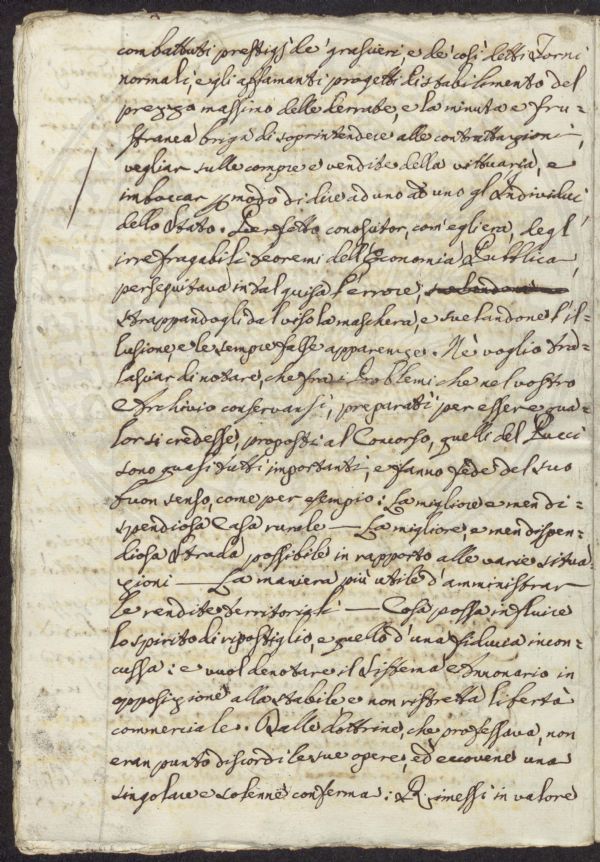 combattuti prestigj de' grascieri, e de' così detti Forni
normali, e gli affamanti progetti di stabilimento del
prezzo massimo delle derrate, e la minuta e fru=
stranea briga di soprintendere alle contrattazioni,
vegliar sulle compre e vendite della vittuaria, e
imboccar p modo di dire ad uno ad uno gl'Individui
dello Stato. Perfetto conoscitor, com'egli era, degl'
irrefragabili teoremi dell'Economia Pubblica,
perseguitava in tal guisa l'errore,
strappandogli dal viso la maschera, e svelandone l'il=
lusione, e le sempre false apparenze. Nè voglio tra=
lasciar di notare, che fra i Problemi che nel vostro
Archivio conservansi, preparati per essere qua=
lor si credesse, proposti al Concorso, quelli del Pucci
sono quasi tutti importanti, e fanno fede del suo
buon senso, come per esempio: La migliore e men di=
spendiosa Casa rurale — La migliore, e men dispen=
diosa Strada possibile in rapporto alle varie situa=
zioni — La maniera più utile d'amministrar
le rendite territoriali — Cosa possa influire
lo spirito di ripostiglio, e quello d'una fiducia incon=
cussa: e vuol denotare il Sistema Annonario in
opposizione alla stabile e non ristretta libertà
commerciale. Dalle dottrine, che professava, non
eran punto discordi le sue opere, ed eccovene una
singolare e solenne conferma: Rimessi in valore